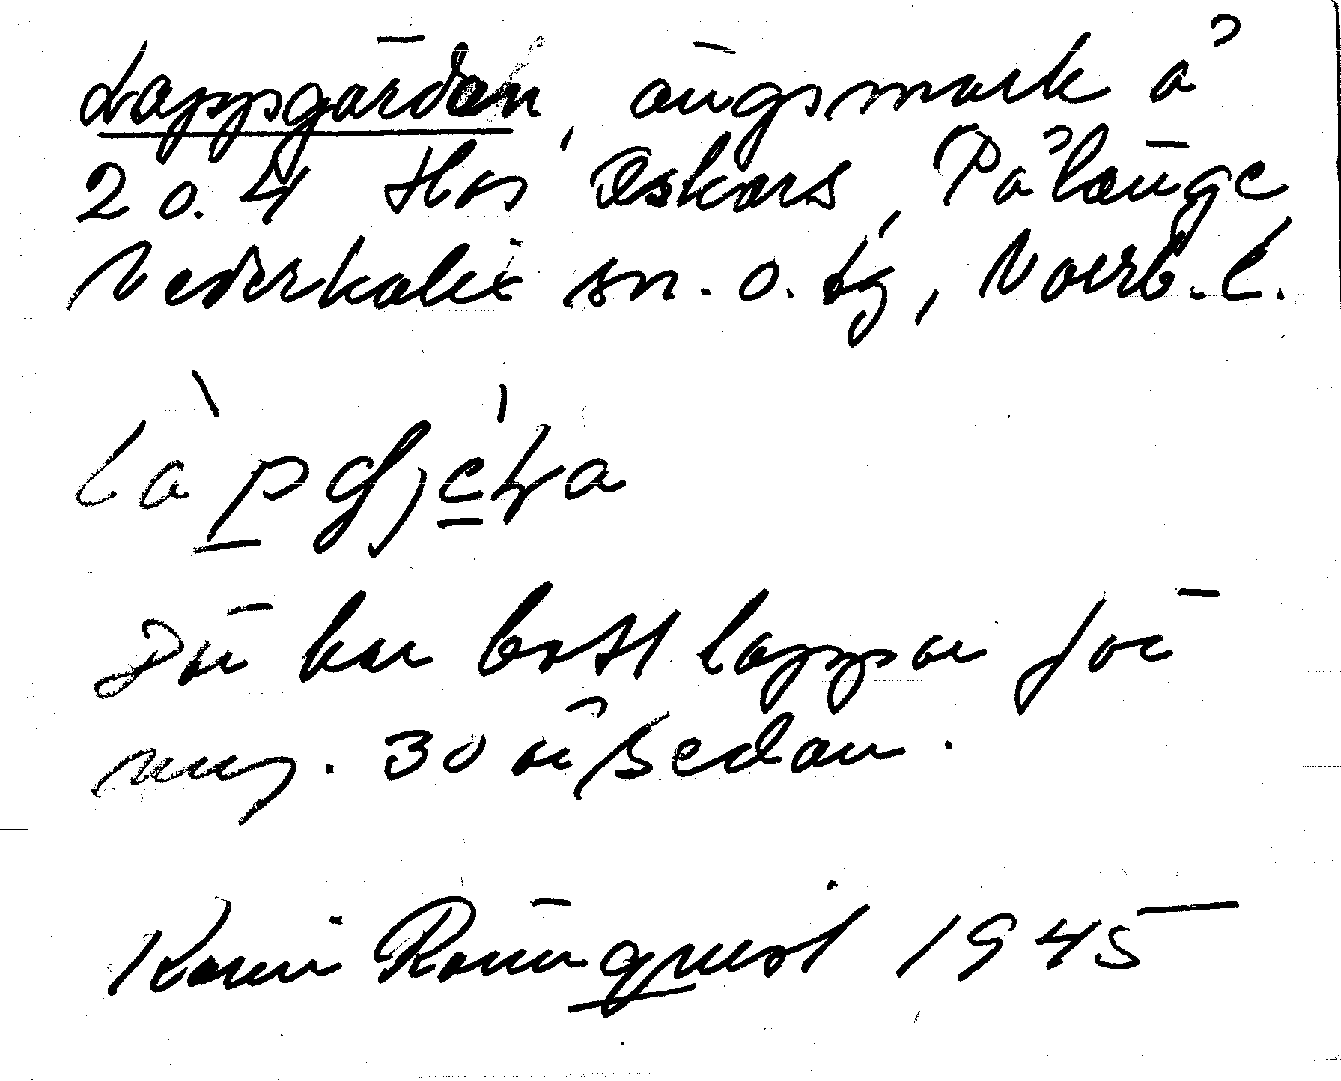 Lappgården, ängsmark å
2 o. 4 Hos Oskars, Pålänge
Nederkalix sn. o. tg, Norrb. l.
Där har bott lappar för
30 år sedan.
Karin Rönnquist 1945